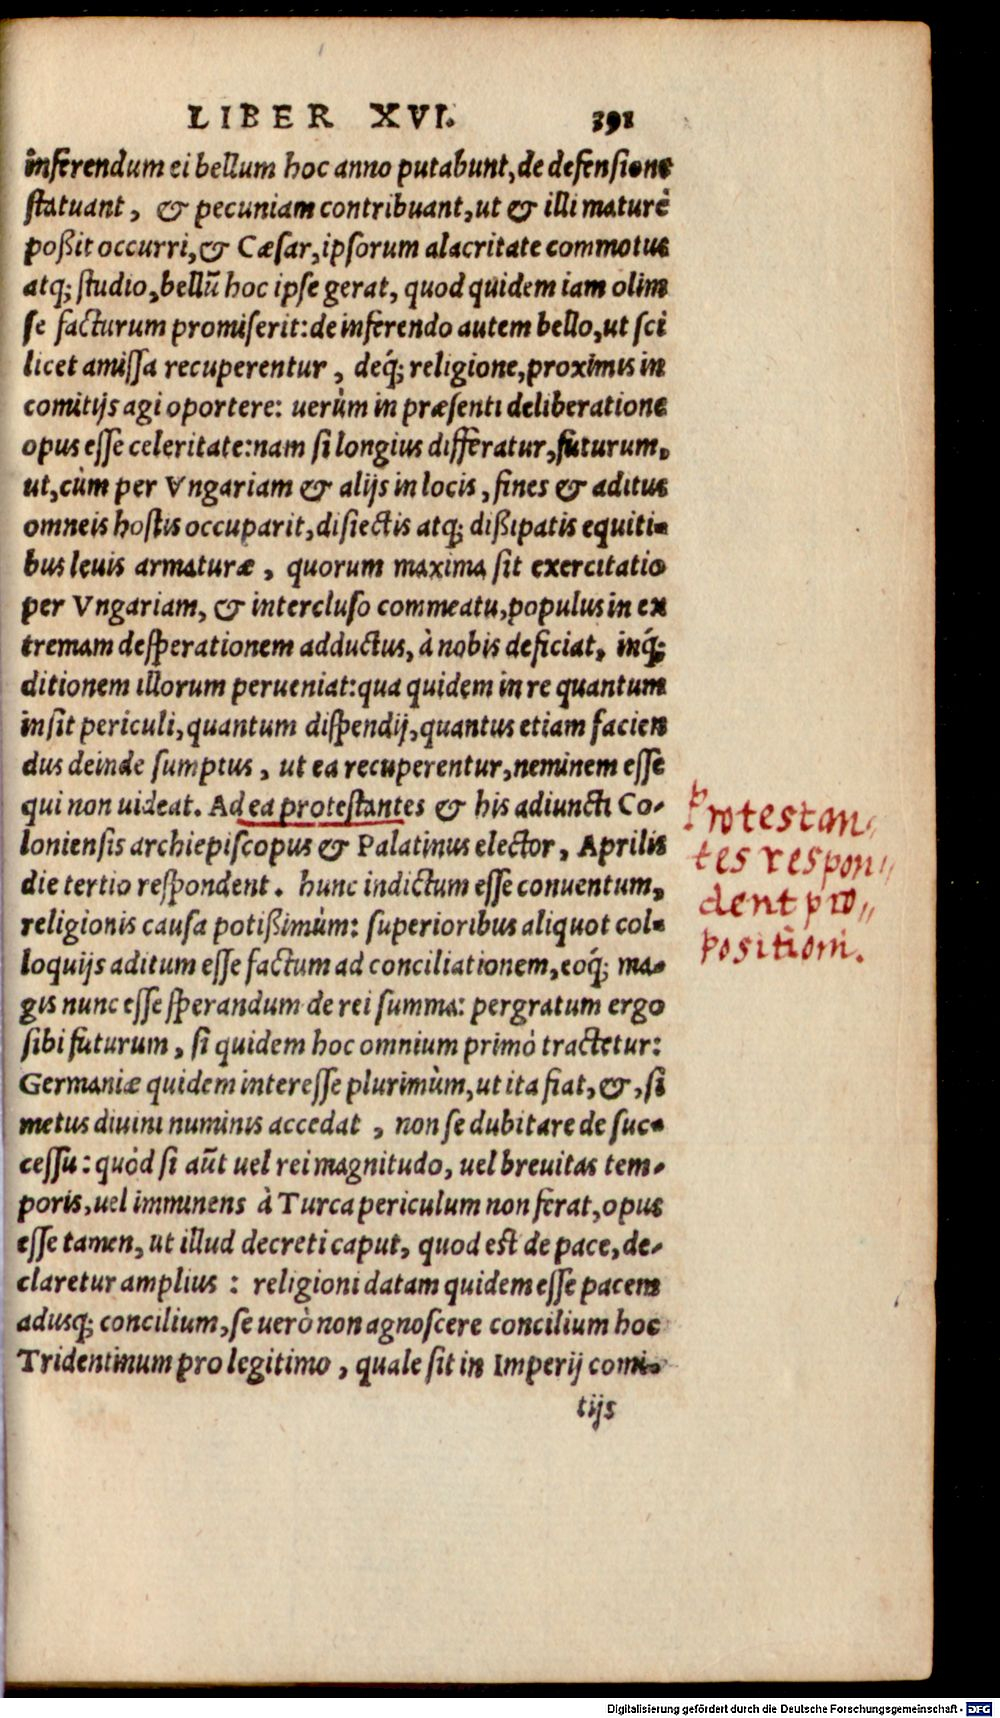 LIBER XVI. 391
inferendum ei bellum hoc anno putabunt, de defensione
statuant, & pecuniam contribuant, ut & illi maturè
poßit occurri, & Cæsar, ipsorum alacritate commotus
atq; studio, bellū hoc ipse gerat, quod quidem iam olim
se facturum promiserit: de inferendo autem bello, ut sci
licet amissa recuperentur, deq́; religione, proximis in
comitijs agi oportere: uerùm in præsenti deliberatione
opus esse celeritate: nam si longius differatur, futurum,
ut, cùm per Vngariam & alijs in locis, fines & aditus
omneis hostis occuparit, disiectis atq; dißipatis equiti-
bus leuis armaturæ, quorum maxima sit exercitatio
per Vngariam, & intercluso commeatu, populus in ex
tremam desperationem adductus, à nobis deficiat, inq́;
ditionem illorum perueniat: qua quidem in re quantum
insit periculi, quantum dispendij, quantus etiam facien
dus deinde sumptus, ut ea recuperentur, neminem esse
qui non uideat. Ad ea protestantes & his adiuncti Co-
loniensis archiepiscopus & Palatinus elector, Aprilis
die tertio respondent. hunc indictum esse conuentum,
religionis causa potißimùm: superioribus aliquot col-
loquijs aditum esse factum ad conciliationem, eoq́; ma-
gis nunc esse sperandum de rei summa: pergratum ergo
sibi futurum, si quidem hoc omnium primò tractetur:
Germaniæ quidem interesse plurimùm, ut ita fiat, &, si
metus diuini numinis accedat, non se dubitare de suc-
cessu: quòd si aūt uel rei magnitudo, uel breuitas tem-
poris, uel imminens à Turca periculum non ferat, opus
esse tamen, ut illud decreti caput, quod est de pace, de-
claretur amplius: religioni datam quidem esse pacem
adusq; concilium, se uerò non agnoscere concilium hoc
Tridentinum pro legitimo, quale sit in Imperij comi-
tijs
Protestan„
tes respon„
dent pro„
positioni.
Digitalisierung gefördert durch die Deutsche Forschungsgemeinschaft - DFG